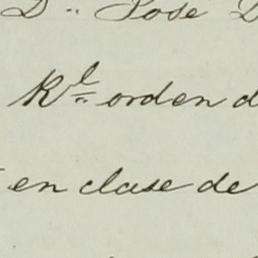 Dⁿ José D
Rˡ orden d
en clase de